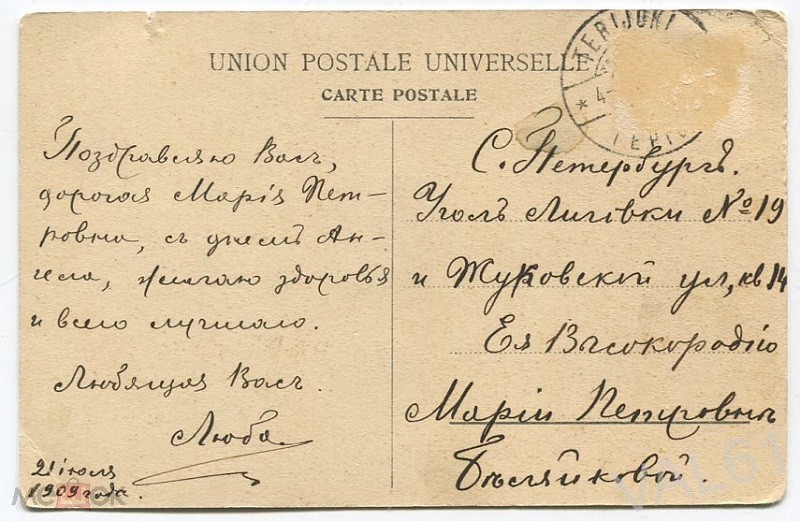 UNION POSTALE UNIVERSELLE
CARTE POSTALE
TERIJOKI
Поздравляю Васъ,
дорогая Марія Пет-
ровна, съ днемъ Ан-
гела, желаю здоровья
и всего лучшаго.
Любящая Васъ
Люба.
21 іюля
1909 года.
С. Петербургъ.
Уголъ Лиговки № 19
и Жуковской ул, кв 14
Ея Высокородію
Маріи Петровнѣ
VAL61